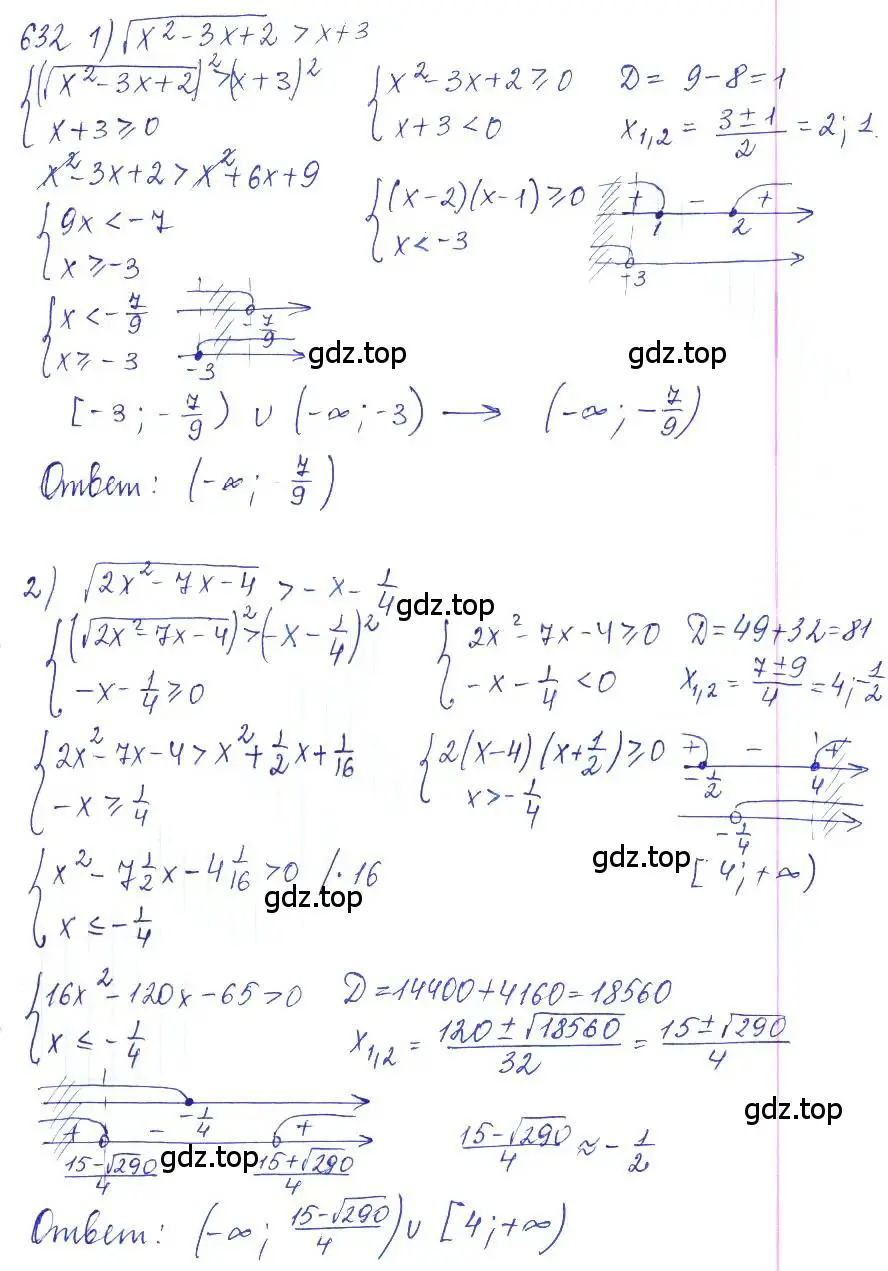 632 1) √(x² - 3x + 2) > x + 3
{ (√(x² - 3x + 2))² > (x + 3)²   { x² - 3x + 2 ≥ 0   D = 9 - 8 = 1
x + 3 ≥ 0   x + 3 < 0   x₁,₂ = (3 ± 1)/2 = 2; 1.
x² - 3x + 2 > x² + 6x + 9
{ 9x < -7   { (x - 2)(x - 1) ≥ 0   + - +
x ≥ -3   x < -3   1 2
+3
{ x < -7/9   -7/9
x ≥ -3   -3
gdz.top gdz.top
[-3; -7/9) ∪ (-∞; -3) → (-∞; -7/9)
Ответ: (-∞; -7/9)
2) √(2x² - 7x - 4) > -x - 1/4
gdz.top
{ (√(2x² - 7x - 4))² > (-x - 1/4)²   { 2x² - 7x - 4 ≥ 0   D = 49 + 32 = 81
-x - 1/4 ≥ 0   -x - 1/4 < 0   x₁,₂ = (7 ± 9)/4 = 4; -1/2
{ 2x² - 7x - 4 > x² + 1/2 x + 1/16   { 2(x - 4)(x + 1/2) ≥ 0   + - +
-x ≥ 1/4   x > -1/4   -1/2 4
-1/4
{ x² - 7 1/2 x - 4 1/16 > 0 /·16   gdz.top   [4; +∞)
gdz.top
x ≤ -1/4
{ 16x² - 120x - 65 > 0   D = 14400 + 4160 = 18560
x ≤ -1/4   x₁,₂ = (120 ± √18560)/32 = (15 ± √290)/4
-1/4   gdz.top
+ - +   (15 - √290)/4 ≈ -1/2
(15 - √290)/4   gdz.top   (15 + √290)/4
Ответ: (-∞; (15 - √290)/4) ∪ [4; +∞)